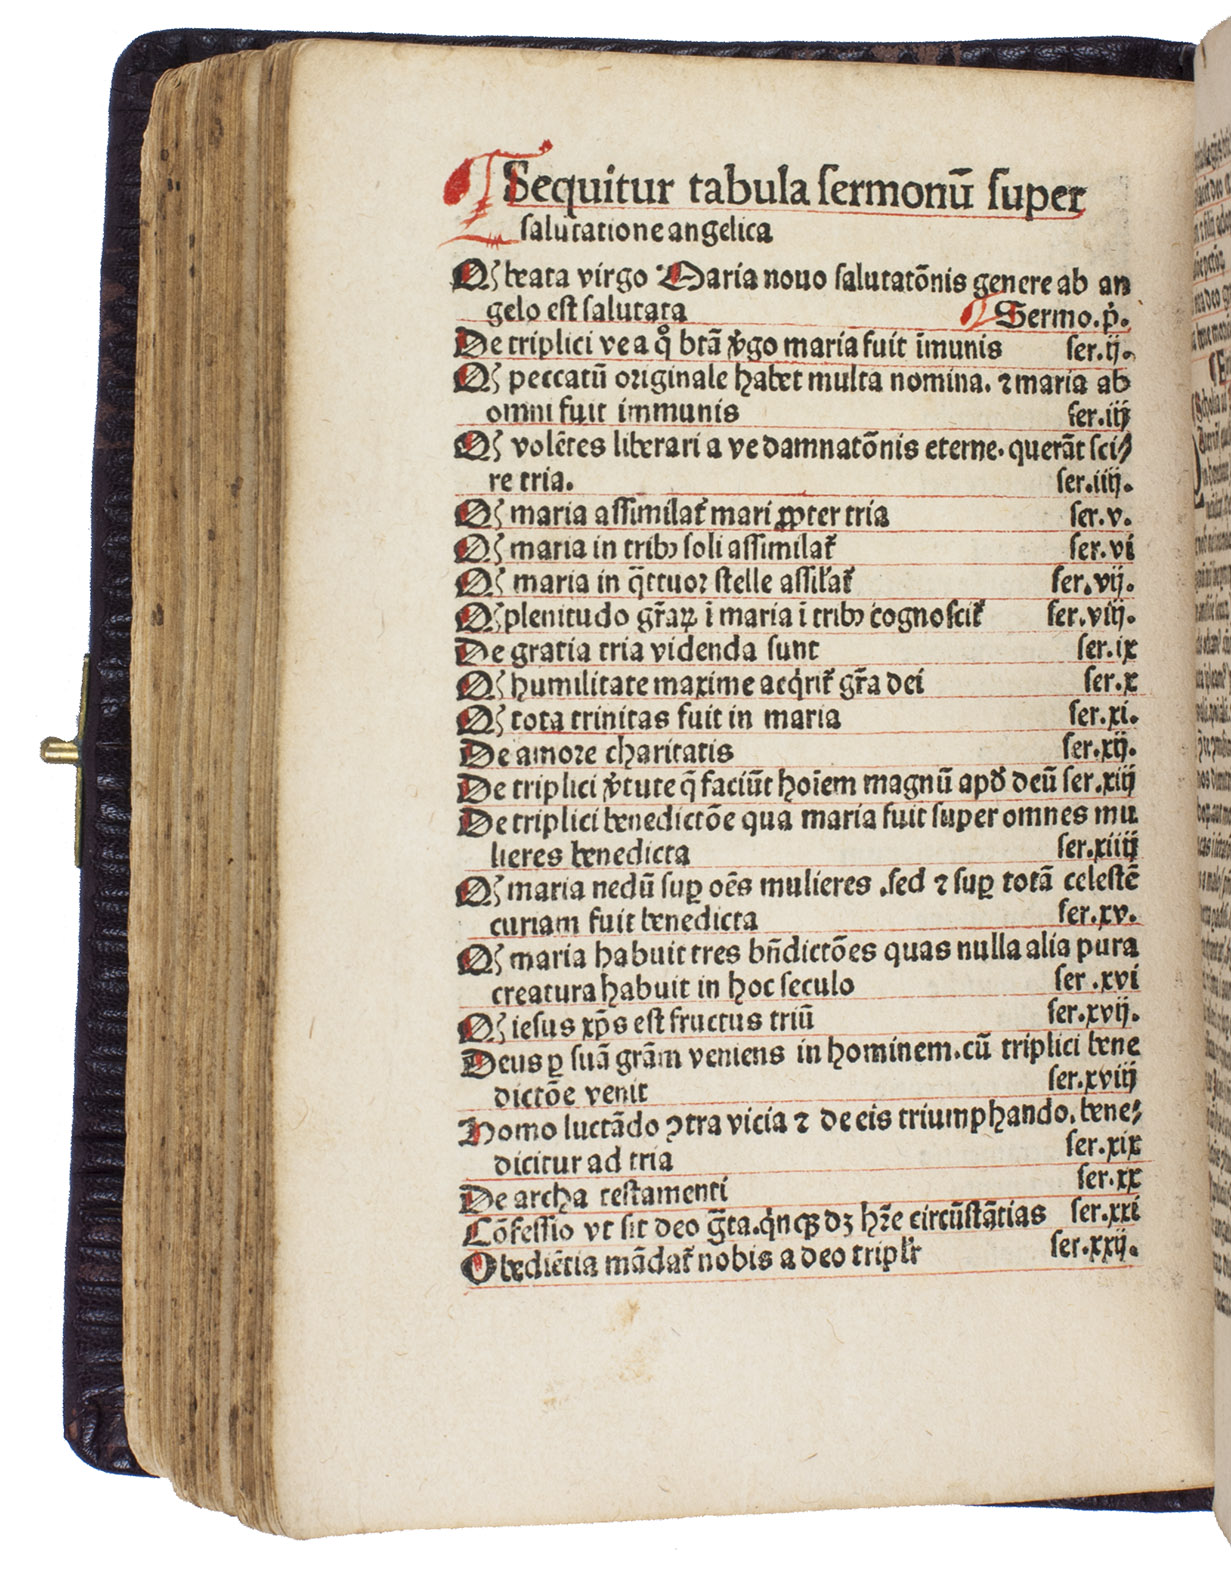 Sequitur tabula sermonū super
salutatione angelica
Qꝫ beata virgo Maria nouo salutatōnis genere ab an
gelo est salutata Sermo.p̄.
De triplici ve a q̊ btā v̓go maria fuit īmunis ser.ij.
Qꝫ peccatū originale habet multa nomina. ⁊ maria ab
omni fuit immunis ser.iij
Qꝫ volētes liberari a ve damnatōnis eterne. querāt sci⸗
re tria. ser.iiij.
Qꝫ maria assimilat᷑ mari ꝓpter tria ser.v.
Qꝫ maria in tribꝫ soli assimilat᷑ ser.vi
Qꝫ maria in q̄ttuor stelle assil̓at᷑ ser.vij.
Qꝫ plenitudo gr̄aꝝ ī maria ī tribꝫ cognoscit᷑ ser.viij.
De gratia tria videnda sunt ser.ix
Qꝫ humilitate maxime acq̓rit᷑ gr̄a dei ser.x
Qꝫ tota trinitas fuit in maria ser.xi.
De amore charitatis ser.xij.
De triplici v̓tute q̄ faciūt hoīem magnū apd̓ deū ser.xiij
De triplici benedictōe qua maria fuit super omnes mu
lieres benedicta ser.xiiij
Qꝫ maria nedū suꝑ oēs mulieres .sed ⁊ suꝑ totā celestē
curiam fuit benedicta ser.xv.
Qꝫ maria habuit tres bn̄dictōes quas nulla alia pura
creatura habuit in hoc seculo ser .xvi
Qꝫ iesus xp̄s est fructus triū ser.xvij.
Deus ꝑ suā grām veniens in hominem.cū triplici bene
dictōe venit ser.xviij
Homo luctādo ꝯtra vicia ⁊ de eis triumphando. bene⸗
dicitur ad tria ser.xix
De archa testamenti ser.xx
Cōfessio vt sit deo ḡta.q̓nqꝫ dꝫ hr̄e circūstātias ser.xxi
Obediētia mādat᷑ nobis a deo tripl̓r ser.xxij.